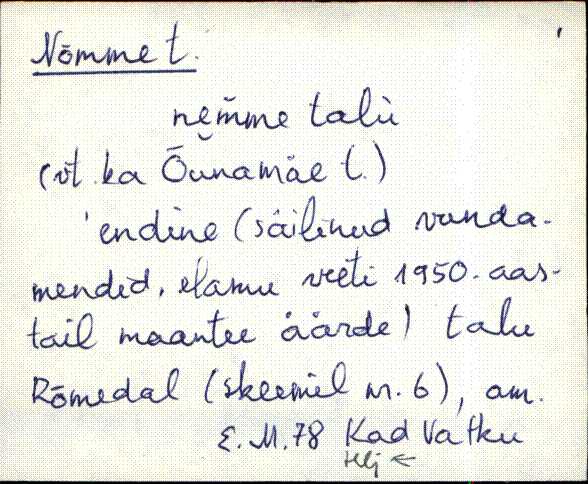 Nõmme t.
nem̆me talù
(vt. ka Õunamäe t.)
'endine (säilinud vunda-
mendid, elamu veeti 1950. aas-
tail maantee äärde) talu
Rõmedal (skeemil nr. 6), am.
E. M. 78 Kad Vatku
Hlj ←